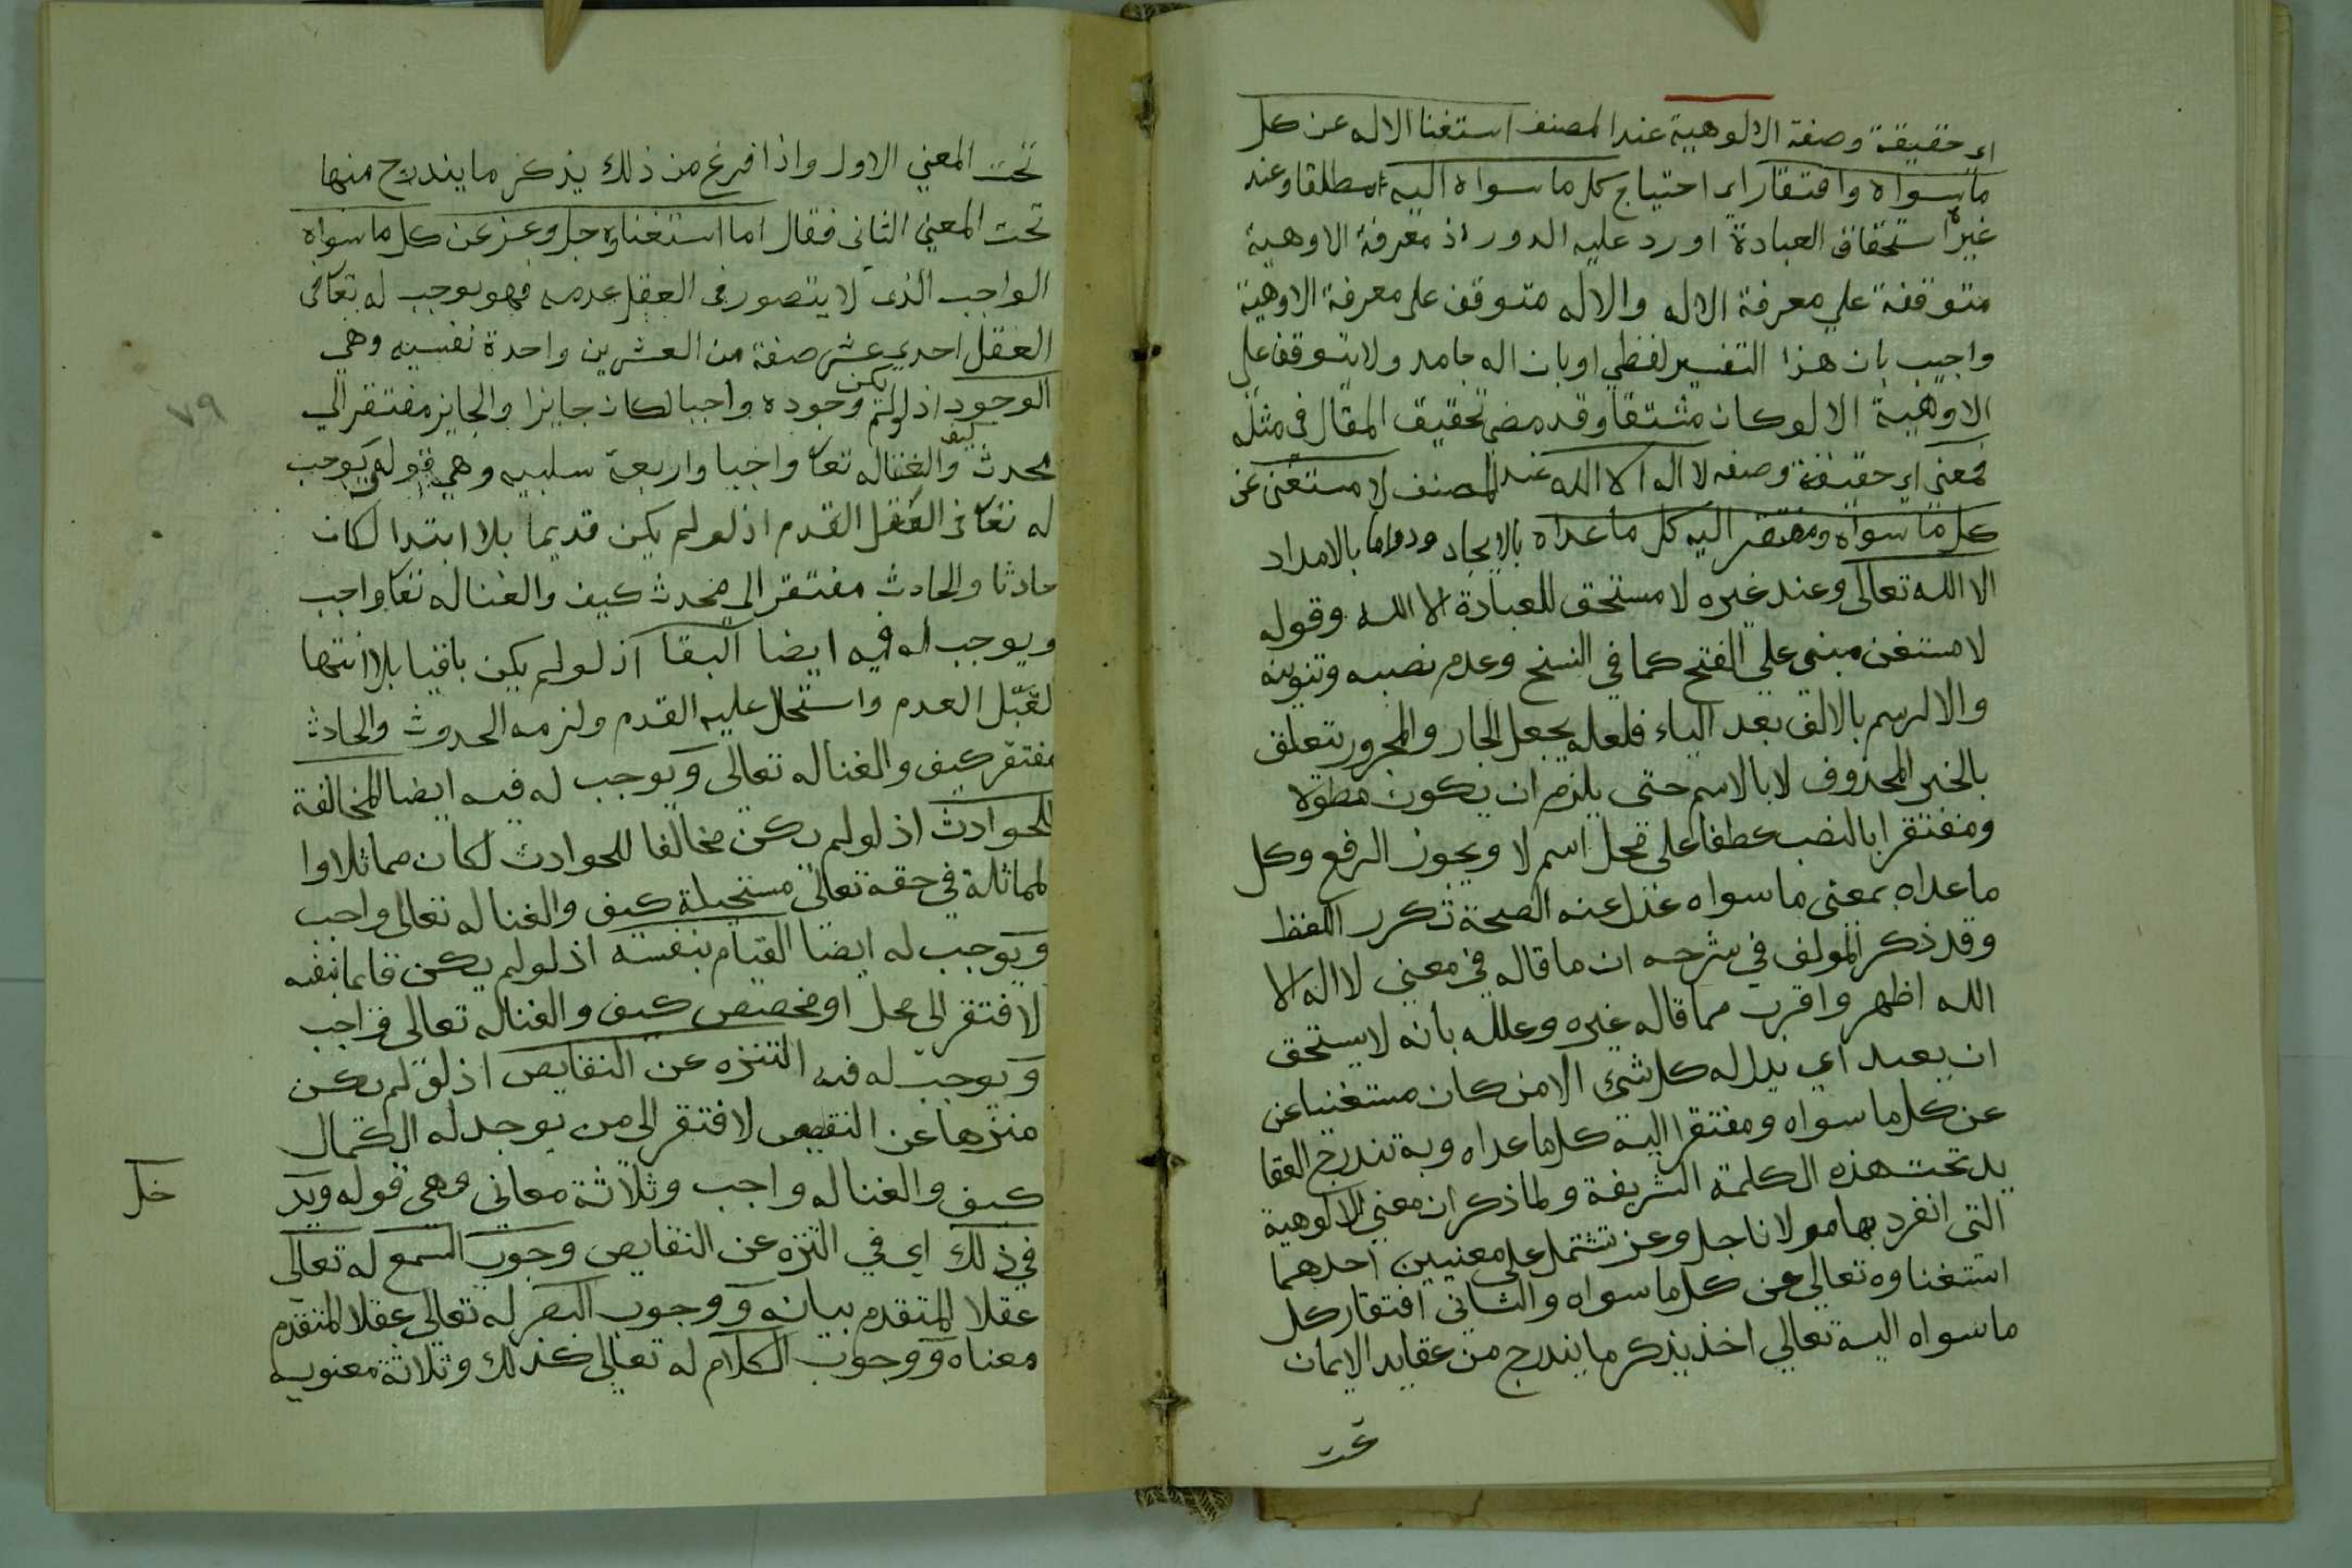 اي حقيقة وصفة الالوهية عند المصنف استغنا الاله عن كل
ما سواه وافتقار اي احتياج كل ما سواه اليه مطلقا وعند
غيره استحقاق العبادة اورد عليه الدور اذ معرفة الاوهية
متوقفة علي معرفة الاله والاله متوقف على معرفة الاوهية
واجيب بان هذا التفسير لفظي او بان اله جامد ولا يتوقف على
الاوهية الا لو كان مشتقا وقد مضى تحقيق المقال في مثله
فمعنى اي حقيقة وصفه لا اله الا الله عند المصنف لا مستغنى عن
كل ما سواه ومفتقر اليه كل ما عداه بالايجاد ودواما بالامداد
الا الله تعالى وعند غيره لا مستحق للعبادة الا الله وقوله
لا مستغن مبنى على الفتح كما في النسخ وعدم نصبه وتنوينه
والا لرسم بالالف بعد الياء فلعله يجعل الجار والمجرور يتعلق
بالخبر المحذوف لا بالاسم حتى يلزم ان يكون مطولا
ومفتقرا بالنصب عطفا على محل اسم لا ويجوز الرفع وكل
ما عداه بمعنى ما سواه عدل عنه الصحة تكرر اللفظ
وقد ذكر المولف في شرحه ان ما قاله في معنى لا اله الا
الله اظهر واقرب مما قاله غيره وعلله بانه لا يستحق
ان يعبد اي يدل له كل شئ الا من كان مستغنيا عن
عن كل ما سواه ومفتقرا اليه كل ما عداه وبه تندرج العقا
يد تحت هذه الكلمة الشريفة ولما ذكر ان معنى الالوهية
التى انفرد بها مولانا جل وعز تشتمل على معنيين احدهما
استغناوه تعالى عن كل ما سواه والثانى افتقار كل
ما سواه اليه تعالي اخذ يذكر ما يندرج من عقايد الايمان
تحت
تحت المعنى الاول واذا فرغ من ذلك يذكر ما يندرج منها
تحت المعنى الثانى فقال اما استغناوه جل وعز عن كل ما سواه
الواجب الذى لا يتصور فى العقل عدمه فهو يوجب له تعا فى
العقل احدى عشر صفة من العشرين واحدة نفسيه وهي
الوجود اذ لو لم يكن وجوده واجبا لكان جايزا والجايز مفتقر الي
محدث كيف والغنا له تعا واجبا واربعة سلبيه وهى قوله يوجب
له تعا فى العقل القدم اذ لو لم يكن قديما بلا ابتدا لكان
حادثا والحادث مفتقر الى محدث كيف والغنا له تعا واجب
ويوجب له فيه ايضا البقا اذ لو لم يكن باقيا بلا انتها
لقبل العدم واستحال عليه القدم ولزمه الحدوث والحادث
مفتقر كيف والغنا له تعالى ويوجب له فيه ايضا المخالفة
للحوادث اذ لو لم يكن مخالفا للحوادث لكان مماثلا وا
لمماثلة في حقه تعالى مستحيلة كيف والغنا له تعالى واجب
ويوجب له ايضا القيام بنفسه اذ لو لم يكن قايما بنفسه
لافتقر الى محل او مخصيص كيف والغنا له تعالى واجب
ويوجب له فيه التنزه عن النقايص اذ لو لم يكن
منزها عن النقص لافتقر الى من يوجد له الكمال
كيف والغنا له واجب وثلاثة معانى وهى قوله ويد
خل
في ذلك اي في التنزه عن النقايص وجوب السمع له تعالى
عقلا المتقدم بيانه ووجوب البصر له تعالى عقلا المتقدم
معناه ووجوب الكلام له تعالى كذلك وثلاثة معنويه
٧٩